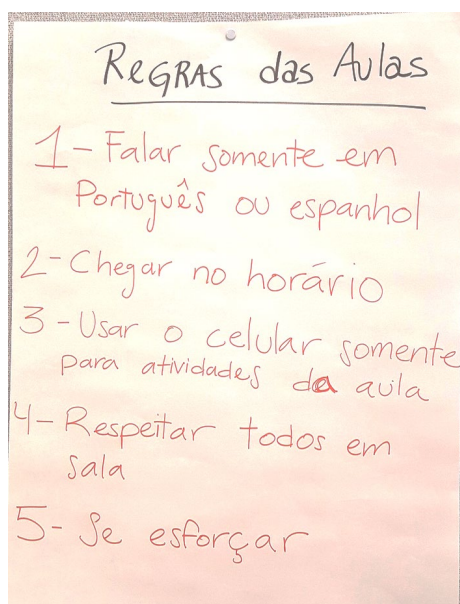 REGRAS das Aulas
1- Falar somente em
Português ou espanhol
2- Chegar no horário
3- Usar o celular somente
para atividades da aula
4- Respeitar todos em
sala
5- Se esforçar